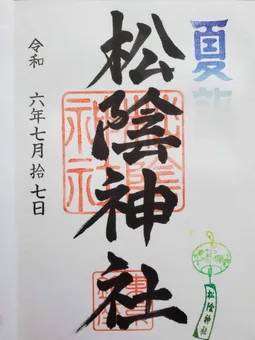 夏詣
松陰神社
令和 六年七月拾七日
松陰神社
松陰神社